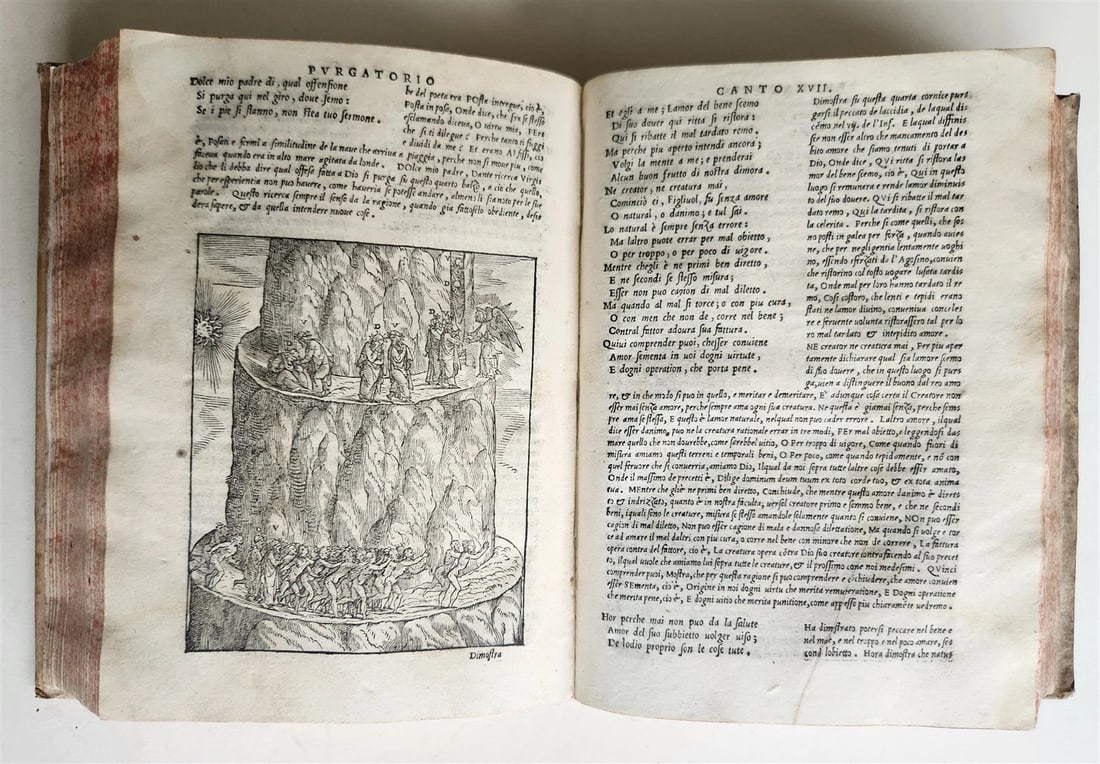 PVRGATORIO
Dolce mio padre di, qual offensione
Si purga qui nel giro, doue semo:
Se i pie si stanno, non stea tuo sermone.
be del porta era POsta intregue, cio è,
Posta in posa, Onde dice, che fra se stesso
esclamando diceua, O virtu mia, PEr
che si ti dilegue? Perche tanto ti fuggi
e diuidi da me? Et erano Affissi, cio
è, Posati e fermi a similitudine de la naue che arriua a piaggia, perche non si moue piu, come
faceua quando era in alto mare agitata da londe. DOlce mio padre, Dante ricerca Virgi
lio che li debba dire qual offesa fatta a Dio si purga su questo quarto balzo, a cio che quello,
che per esperientia non puo hauere, come haueria se potesse andare, almen li sia noto per le sue
parole. Questo ricerca sempre il senso da la ragione, quando gia fattoselo obediente, desi
dera sapere, & da quella intendere nuoue cose.
Dimostra
CANTO XVII.
Et egli a me; Lamor del bene scemo
Di suo douer qui ritta si ristora:
Qui si ribatte il mal tardato remo.
Ma perche piu aperto intendi ancora;
Volgi la mente a me; e prenderai
Alcun buon frutto di nostra dimora.
Ne creator, ne creatura mai,
Cominciò ei, Figliuol, fu senza amore
O natural, o danimo; e tul sai.
Lo natural è sempre senza errore:
Ma laltro puote errar per mal obietto,
O per troppo, o per poco di uigore.
Mentre chegli è ne primi ben diretto,
E ne secondi se stesso misura;
Esser non puo cagion di mal diletto.
Ma quando al mal si torce; o con piu cura,
O con men che non de, corre nel bene;
Contral fattor adoura sua fattura.
Quiui comprender puoi, chesser conuiene
Amor sementa in uoi dogni uirtute,
E dogni operation, che porta pene.
Dimostra su questa quarta cornice purs
garsi il peccato de laccidia, de laqual di=
cemo nel vij. de l'Inf. E laqual diffinis
se non esser altro che mancamento del de
bito amore che siamo tenuti di portar a
Dio, Onde dice, QVi ritta si ristora las
mor del bene scemo, cio è, Qui in questo
luogo si remunera e rende lamor diminuis
to del suo douere. QVi si ribatte il mal tar
dato remo, Qui la tardita, si ristora con
la celerita. Perche si come quelli, che sos
no posti in galea per forza, quando auies
ne, che per negligentia lentamente uoghi
no, essendo sferzati da l'Agosino, conuien
che ristorino col tosto uogare lusata tardis
ta, Onde mal per loro hanno tardato il re
mo, Cosi costoro, che lenti e tepidi erano
stati ne lamor diuino, conueniua con celes
re e feruente volunta ristorassero tal per lo
ro mal tardato & intepidito amore.
NE creator ne creatura mai, Per piu aper
tamente dichiarare qual sia lamore scemo
di suo douere, che in questo luogo si purs
ga, uien a distinguere il buono dal reo amo
re, & in che modo si puo in quello, e meritar e demeritare, E' adunque cosa certa il Creatore non
esser mai senza amore, perche sempre ama ogni sua creatura. Ne questa è giamai senza, perche sems
pre ama se stessa, E questo è lamor naturale, nelqual non puo cader errore. Laltro amore, ilqual
dice esser danimo, puo ne la creatura rationale errar in tre modi, PEr mal obietto, e leggendosi das
mare quello che non dourebbe, come sarebbel uitio, O Per troppo di uigore, Come quando fuori di
misura amiamo questi terreni e temporali beni, O Per poco, come quando tepidamente, e nō con
quel feruore che si conuerria, amiamo Dio, Ilqual da noi sopra tutte laltre cose debbe esser amato,
Onde il massimo de precetti è, Dilige dominum deum tuum ex toto corde tuo, & ex tota anima
tua. MEntre che gliè ne primi ben diretto, Conchiude, che mentre questo amore danimo è direts
to & indrizzato, quanto è in nostra faculta, uersol creatore primo e sommo bene, e che ne secondi
beni, iquali sono le creature, misura se stesso amandole solamente quanto si conuiene, NOn puo esser
cagion di mal diletto, Non puo esser cagione di mala e dannosa dilettatione, Ma quando si uolge e tor
ce ad amare il mal daltri con piu cura, o corre nel bene con minore che non de correre, La fattura
opera contra del fattore, cio è, La creatura opera cōtra Dio suo creatore contrafacendo al suo precet
to, ilqual vuole che amiamo lui sopra tutte le creature, & il prossimo come noi medesimi. QVinci
comprender puoi, Mostra, che per questa ragione si puo comprendere e cōchiudere, che amore conuien
esser SEmenta, cio è, Origine in noi dogni virtu che merita remuneratione, E Dogni operatione
che merita pene, cio è, E dogni vitio che merita punitione, come appresso piu chiaramēte uedremo.
Hor perche mai non puo da la salute
Amor del suo subbietto uolger uiso;
De lodio proprio son le cose tute.
Ha dimostrato potersi peccare nel bene e
nel mal, e nel troppo e nel poco amare, ses
cond lobietto. Hora dimostra che natus